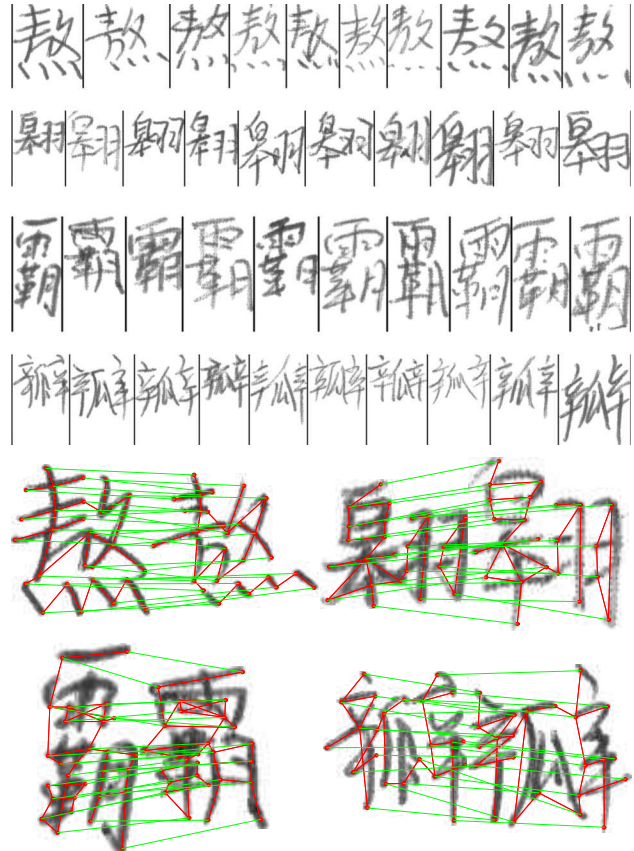 熬熬熬熬熬熬熬熬熬熬
翱翱翱翱翱翱翱翱翱翱
霸霸霸霸霸霸霸霸霸霸
瓣瓣瓣瓣瓣瓣瓣瓣瓣瓣
熬熬 翱翱
霸霸 瓣瓣